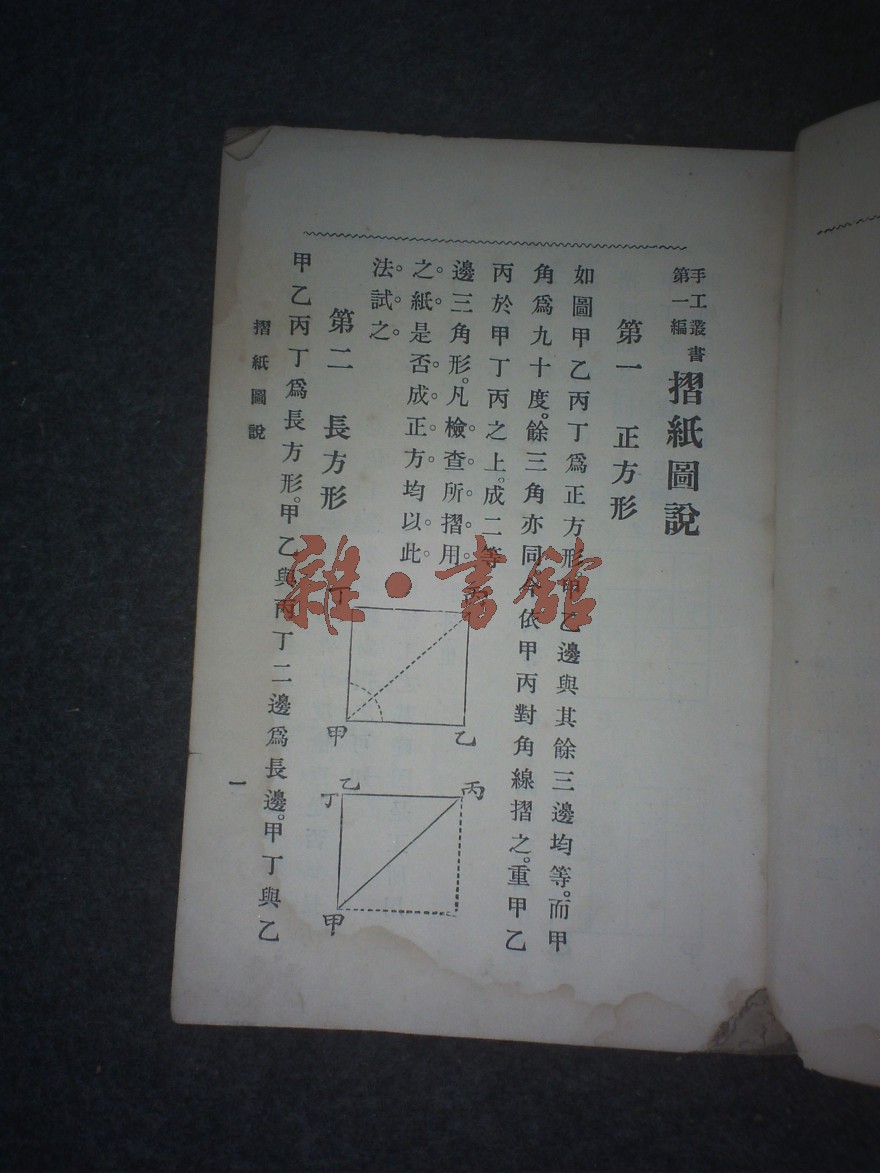 手工叢書
第一編
摺紙圖說
第一 正方形
如圖甲乙丙丁爲正方形甲乙邊與其餘三邊均等。而甲
角爲九十度。餘三角亦同。今依甲丙對角線摺之。重甲乙
丙於甲丁丙之上。成二等
邊三角形。凡檢查所摺用
之紙是否成正方均以此
法試之。
丁 丙
甲 乙
乙
丁 丙
甲
第二 長方形
甲乙丙丁爲長方形。甲乙與丙丁二邊爲長邊。甲丁與乙
摺紙圖說
一
雜·書館